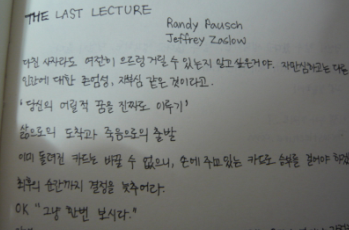 THE LAST LECTURE
Randy Pausch
Jeffrey Zaslow
사람라도 여전히 으르렁 거릴 수 있는지 알고 싶은거야. 자만심하고는 다른
인간에 대한 존엄성, 자부심 같은 것이라고.
'당신의 어릴적 꿈을 진짜로 이루기'
삶으로의 도착과 죽음으로의 출발
이미 돌려진 카드는 바꿀 수 없으니, 손에 쥐고 있는 카드로 승부를 걸어야
최후의 순간까지 결정을 늦추어라.
OK "그냥 한번 보시라."